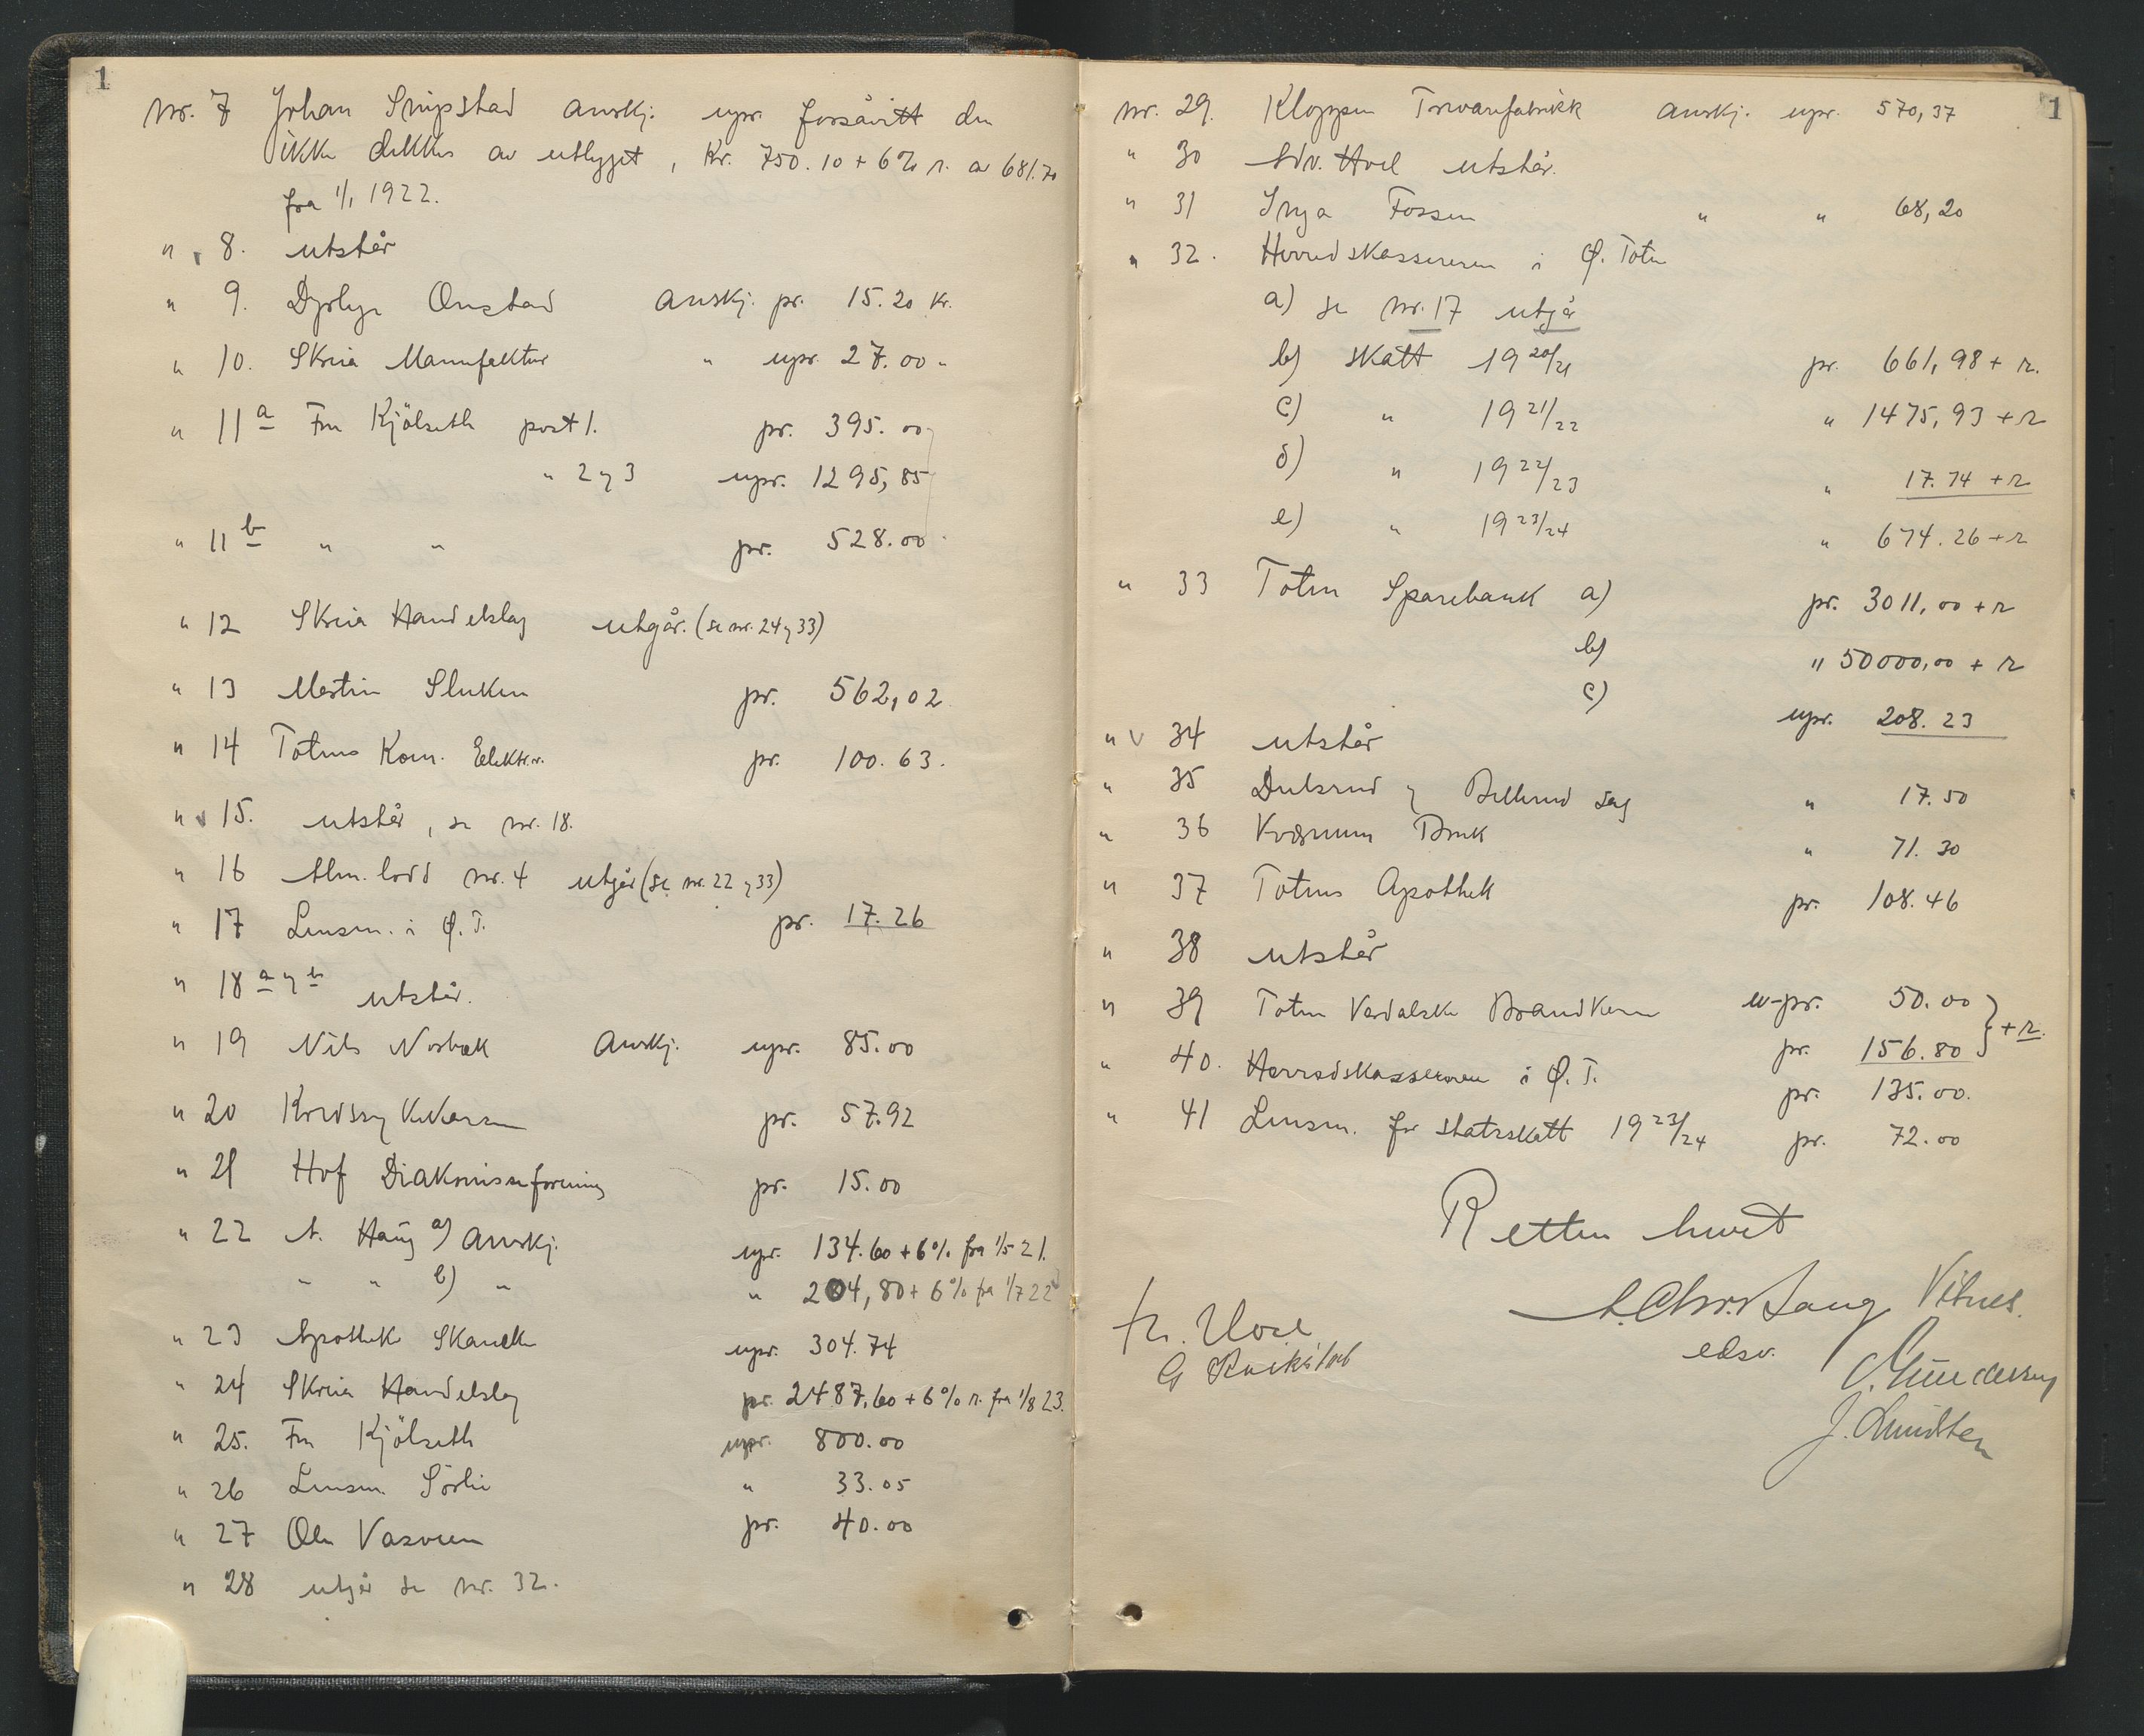 1
Nr. 7 Johan Snipstad anerkj. upr. forsåvitt den
ikke dekkes av utlegget, Kr. 750.10 + 6% r. av 681.70
fra 1/1 1922.
" 8. utstår
" 9. Dyrlæge Onstad anerkj. pr. 15.20 kr.
" 10. Skreia Manufaktur " upr. 27.00 "
" 11 a Fru Kjölseth post 1. pr. 395.00
" 2 og 3 upr. 1295,85
" 11 b " " pr. 528.00
" 12 Skreia Handelslag utgår. (se nr. 24 og 33)
" 13 Martin Sluken pr. 562,02
" 14 Totens Kom. Elektr.v. pr. 100.63.
" 15. utstår, se nr. 18.
" 16 Alm. lodd nr. 4 utgår (se nr. 22 og 33)
" 17 Lensm. i Ø.T. pr. 17.26
" 18 a og b utstår.
" 19 Nils Norbæk Anerkj. upr. 85.00
" 20 Kredssykekassen pr. 57.92
" 21 Hof Diakonisseforening pr. 15.00
" 22 A. Haug a) Anerkj. upr. 134.60 + 6% fra 1/5 21.
" " b) " " 204,80 + 6% fra 1/7 22
" 23 Apotheker upr. 304.74
" 24 Skreia Handelslag pr. 2487.60 + 6% r. fra 1/8 23.
" 25. Fru Kjölseth upr. 800.00
" 26 Lensm. Sörlie " 33.05
" 27 Ole Vasveen pr. 40.00
" 28 utgår se nr. 32.
1
Nr. 29. Kloppen Trevarefabrikk anerkj. upr. 570,37
" 30 Adv. Hoel utstår.
" 31 Inga Fossen " " 68,20
" 32. Herredskassereren i Ø. Toten
a) se nr. 17 utgår
b) skatt 1920/21 pr. 661,98 + r.
c) " 1921/22 " 1475,93 + r
d) " 1922/23 " 17.74 + r
e) " 1923/24 " 674.26 + r
" 33 Toten Sparebank a) pr. 3011,00 + r
b) " 50000,00 + r
c) upr. 208.23
" 34 utstår
" 35 Dulsrud og Billerud sag " 17.50
" 36 Kværnum Bruk " 71.30
" 37 Totens Apothek pr. 108.46
" 38 utstår
" 39 Toten Vardalske Brandkasse u-pr. 50.00
pr. 156.80 } + r.
" 40. Herredskassereren i Ø.T. pr. 135.00.
" 41 Lensm. for statsskatt 1923/24 pr. 72.00
Retten hevet
A. Chr. Haug Vitnes.
edsv.
Fr. Hoel
G
O. Gundersen
J.